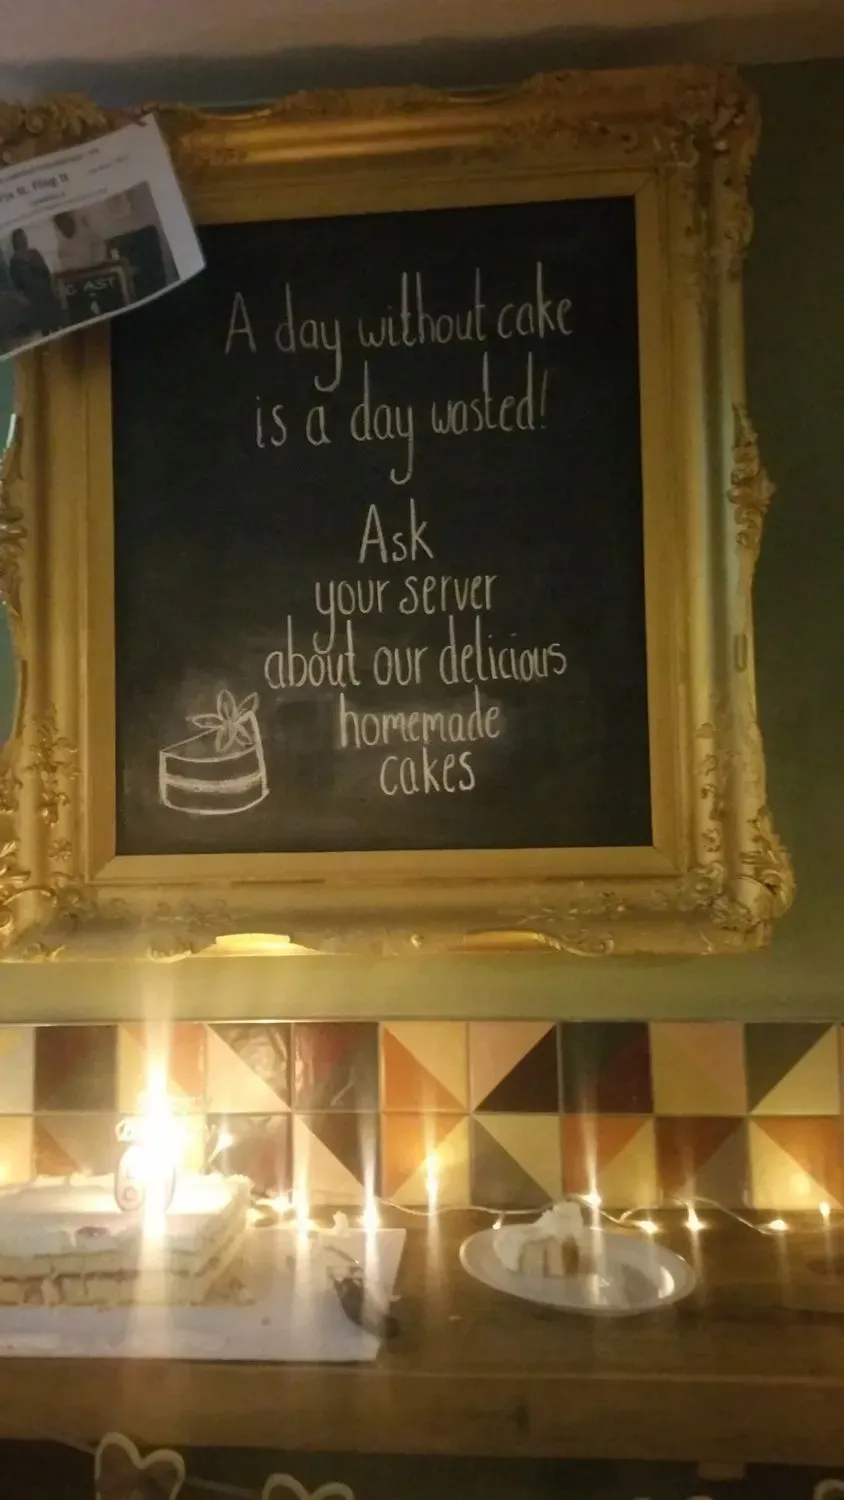 A day without cake
is a day wasted!
Ask
your server
about our delicious
homemade
cakes